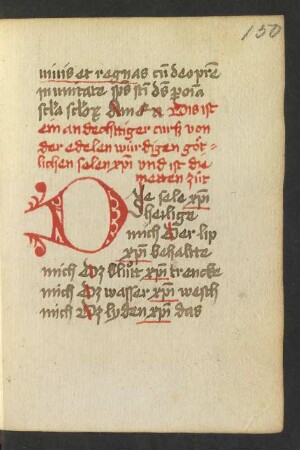 150
vivis et regnas cū deo pre
in unitate sp̄s sc̄i ds̄ p oīa
sc̄la sc̄loꝝ Amē Dis ist
ein andechtiger curß von
der edelen würdigen göt-
lichen selen xp̄i vnd ist die
metten zijt
Die sele xp̄i
heilige
mich Der lip
xp̄i behaltte
mich Dz blůt xp̄i trencke
mich Dz wasser xp̄i wesch
mich Dz lyden xp̄i das